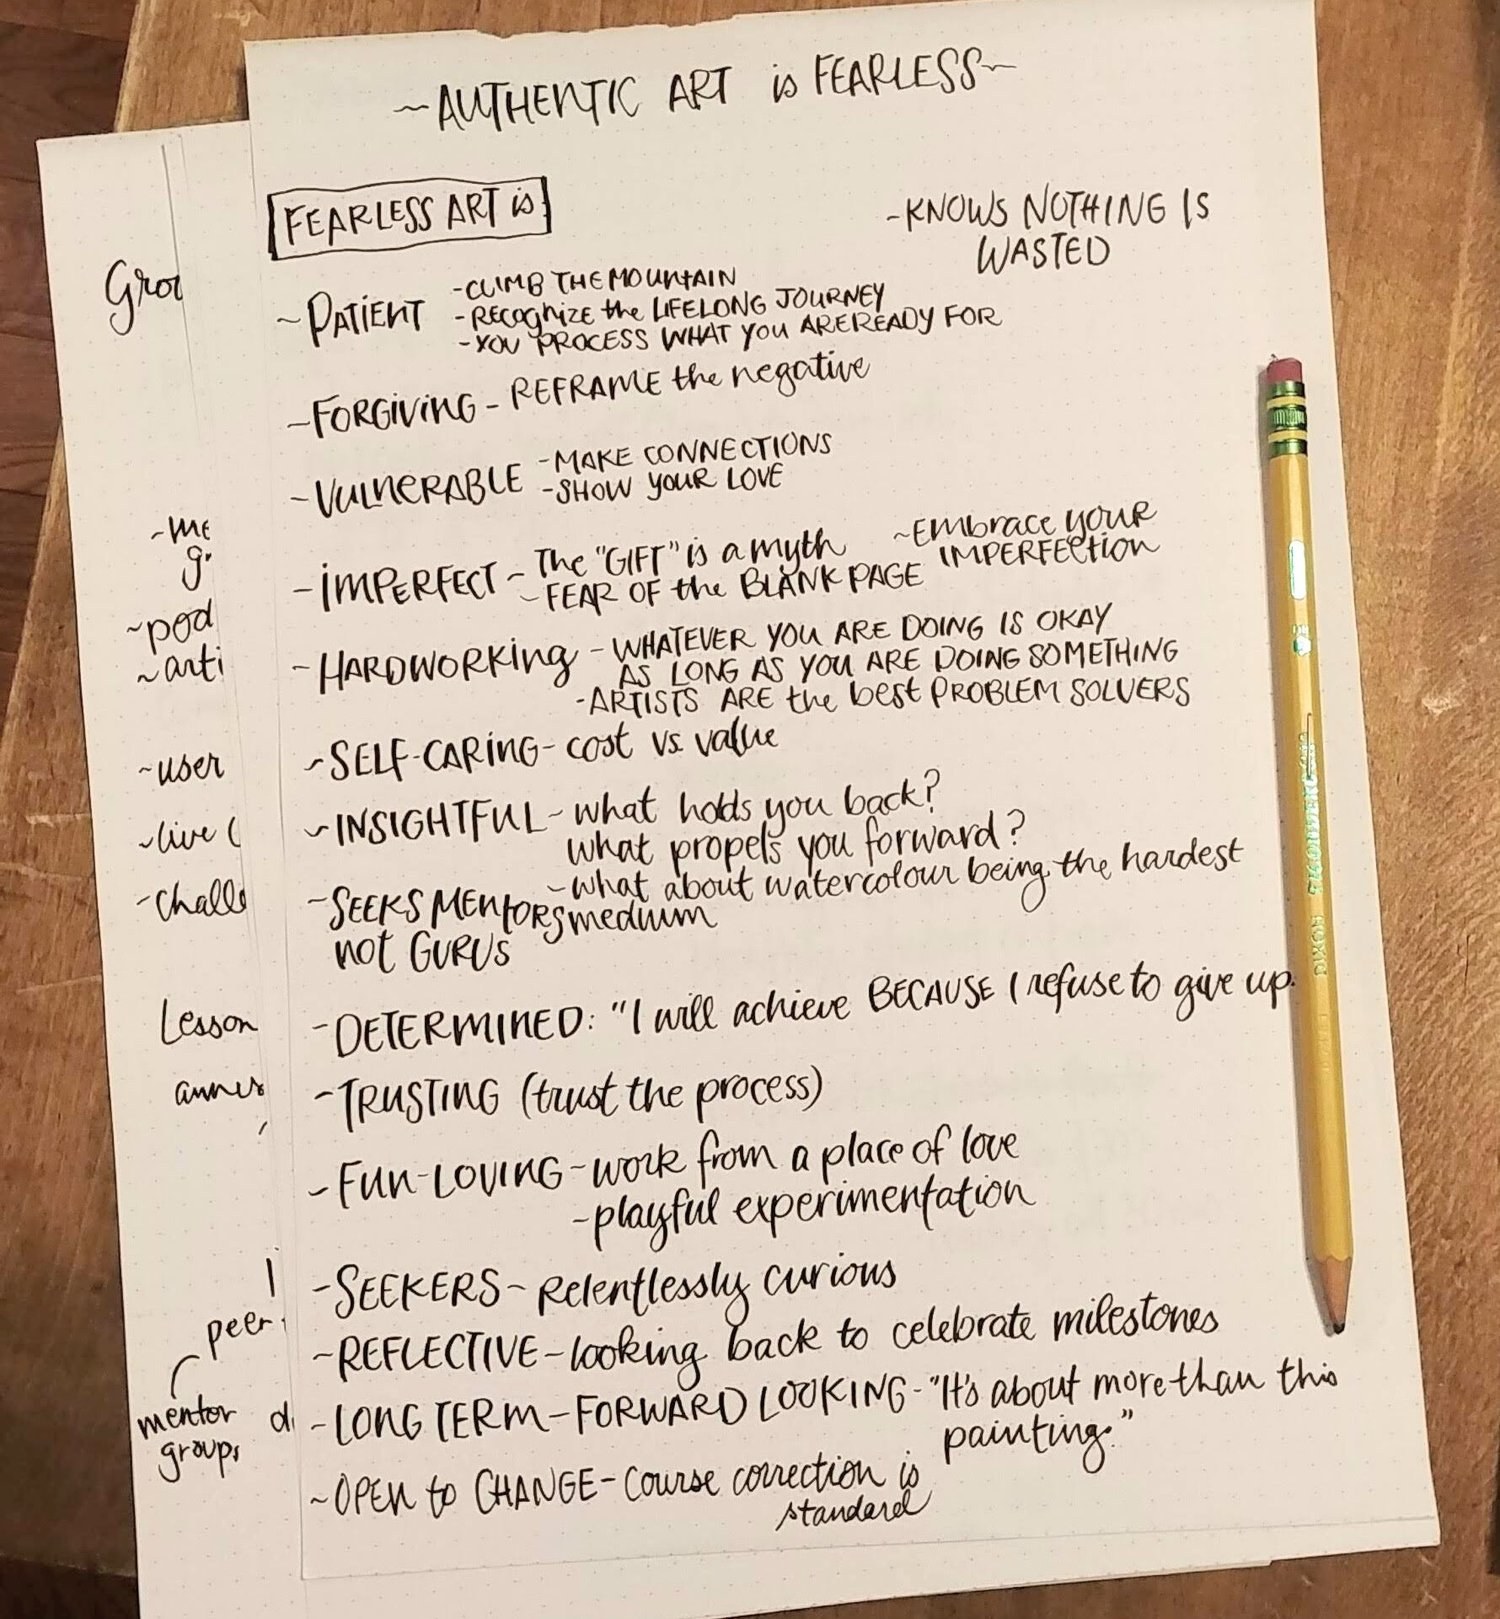 ~AUTHENTIC ART is FEARLESS~
FEARLESS ART is:
-KNOWS NOTHING IS
WASTED
~PATIENT
-CLIMB THE MOUNTAIN
-RECOGNIZE the LIFELONG JOURNEY
-YOU PROCESS WHAT YOU ARE READY FOR
~FORGIVING - REFRAME the negative
~VULNERABLE
-MAKE CONNECTIONS
-SHOW YOUR LOVE
-IMPERFECT - The "GIFT" is a myth
- FEAR OF the BLANK PAGE
~Embrace your
IMPERFECtion
-HARDWORKING - WHATEVER YOU ARE DOING IS OKAY
AS LONG AS YOU ARE DOING SOMETHING
-ARTISTS ARE the best PROBLEM SOLVERS
~SELF-CARING- cost vs. value
~INSIGHTFUL- what holds you back?
what propels you forward?
-what about watercolour being the hardest
medium
-SEEKS MENTORS
not GURUS
-DETERMINED: "I will achieve BECAUSE I refuse to give up.
-TRUSTING (trust the process)
-FUN-LOVING-work from a place of love
-playful experimentation
-SEEKERS- Relentlessly curious
~REFLECTIVE-looking back to celebrate milestones
-LONG TERM-FORWARD LOOKING-"It's about more than this
painting."
~OPEN to CHANGE-Course correction is
standard
Grou
-me
g
~pod
~arti
~user
~live (
-challe
Lesson
peer
mentor
groups
DIXON TICONDEROGA